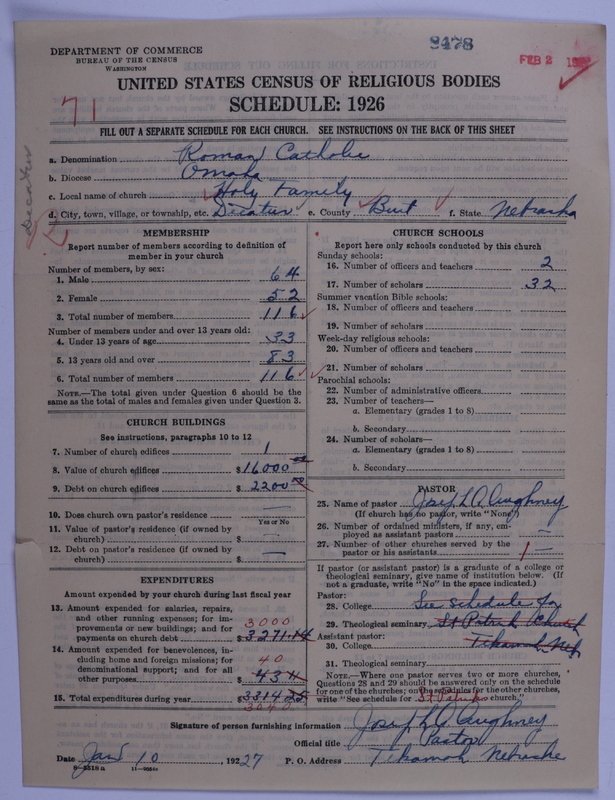 DEPARTMENT OF COMMERCE
BUREAU OF THE CENSUS
WASHINGTON
8478
FEB 2
UNITED STATES CENSUS OF RELIGIOUS BODIES
SCHEDULE: 1926
71
FILL OUT A SEPARATE SCHEDULE FOR EACH CHURCH. SEE INSTRUCTIONS ON THE BACK OF THIS SHEET
Decatur
a. Denomination Roman Catholic
b. Diocese Omaha
c. Local name of church Holy Family
d. City, town, village, or township, etc. Decatur e. County Burt f. State Nebraska
MEMBERSHIP
Report number of members according to definition of
member in your church
Number of members, by sex:
1. Male 64
2. Female 52
3. Total number of members 116
Number of members under and over 13 years old:
4. Under 13 years of age 33
5. 13 years old and over 83
6. Total number of members 116
NOTE.—The total given under Question 6 should be the
same as the total of males and females given under Question 3.
CHURCH BUILDINGS
See instructions, paragraphs 10 to 12
7. Number of church edifices 1
8. Value of church edifices $16000 00
9. Debt on church edifices $2200 00
10. Does church own pastor's residence —
Yes or No
11. Value of pastor's residence (if owned by
church) $ —
12. Debt on pastor's residence (if owned by
church) $ —
EXPENDITURES
Amount expended by your church during last fiscal year
13. Amount expended for salaries, repairs,
and other running expenses; for im-
provements or new buildings; and for
payments on church debt $3271.14
3000
14. Amount expended for benevolences, in-
cluding home and foreign missions; for
denominational support; and for all
other purposes $
40
15. Total expenditures during year $3314
3040
CHURCH SCHOOLS
Report here only schools conducted by this church
Sunday schools:
16. Number of officers and teachers 2
17. Number of scholars 32
Summer vacation Bible schools:
18. Number of officers and teachers
19. Number of scholars
Week-day religious schools:
20. Number of officers and teachers
21. Number of scholars
Parochial schools:
22. Number of administrative officers
23. Number of teachers—
a. Elementary (grades 1 to 8)
b. Secondary
24. Number of scholars—
a. Elementary (grades 1 to 8)
b. Secondary
PASTOR
25. Name of pastor Joseph L. Aughney
(If church has no pastor, write "None")
26. Number of ordained ministers, if any, em-
ployed as assistant pastors —
27. Number of other churches served by the
pastor or his assistants 1 —
If pastor (or assistant pastor) is a graduate of a college or
theological seminary, give name of institution below. (If
not a graduate, write "No" in the space indicated.)
Pastor:
28. College See schedule for
29. Theological seminary St Patrick Church
Assistant pastor:
30. College Tekamah, Neb
31. Theological seminary
NOTE.—Where one pastor serves two or more churches,
Questions 28 and 29 should be answered only on the schedule
for one of the churches; on the schedules for the other churches,
write "See schedule for St Patrick church."
Signature of person furnishing information Joseph L. Aughney
Official title Pastor
Date Jan 10, 1927 P. O. Address Tekamah Nebraska
8-5518 a 11-9084